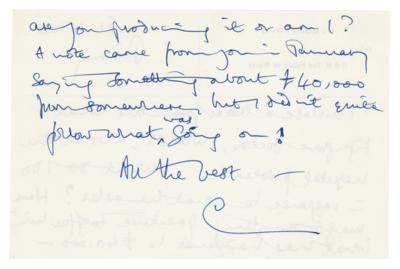 are you producing it or am I?
A note came from you in January
saying something about £40,000
from somewhere but I didn't quite
follow what was going on!
All the best —
C